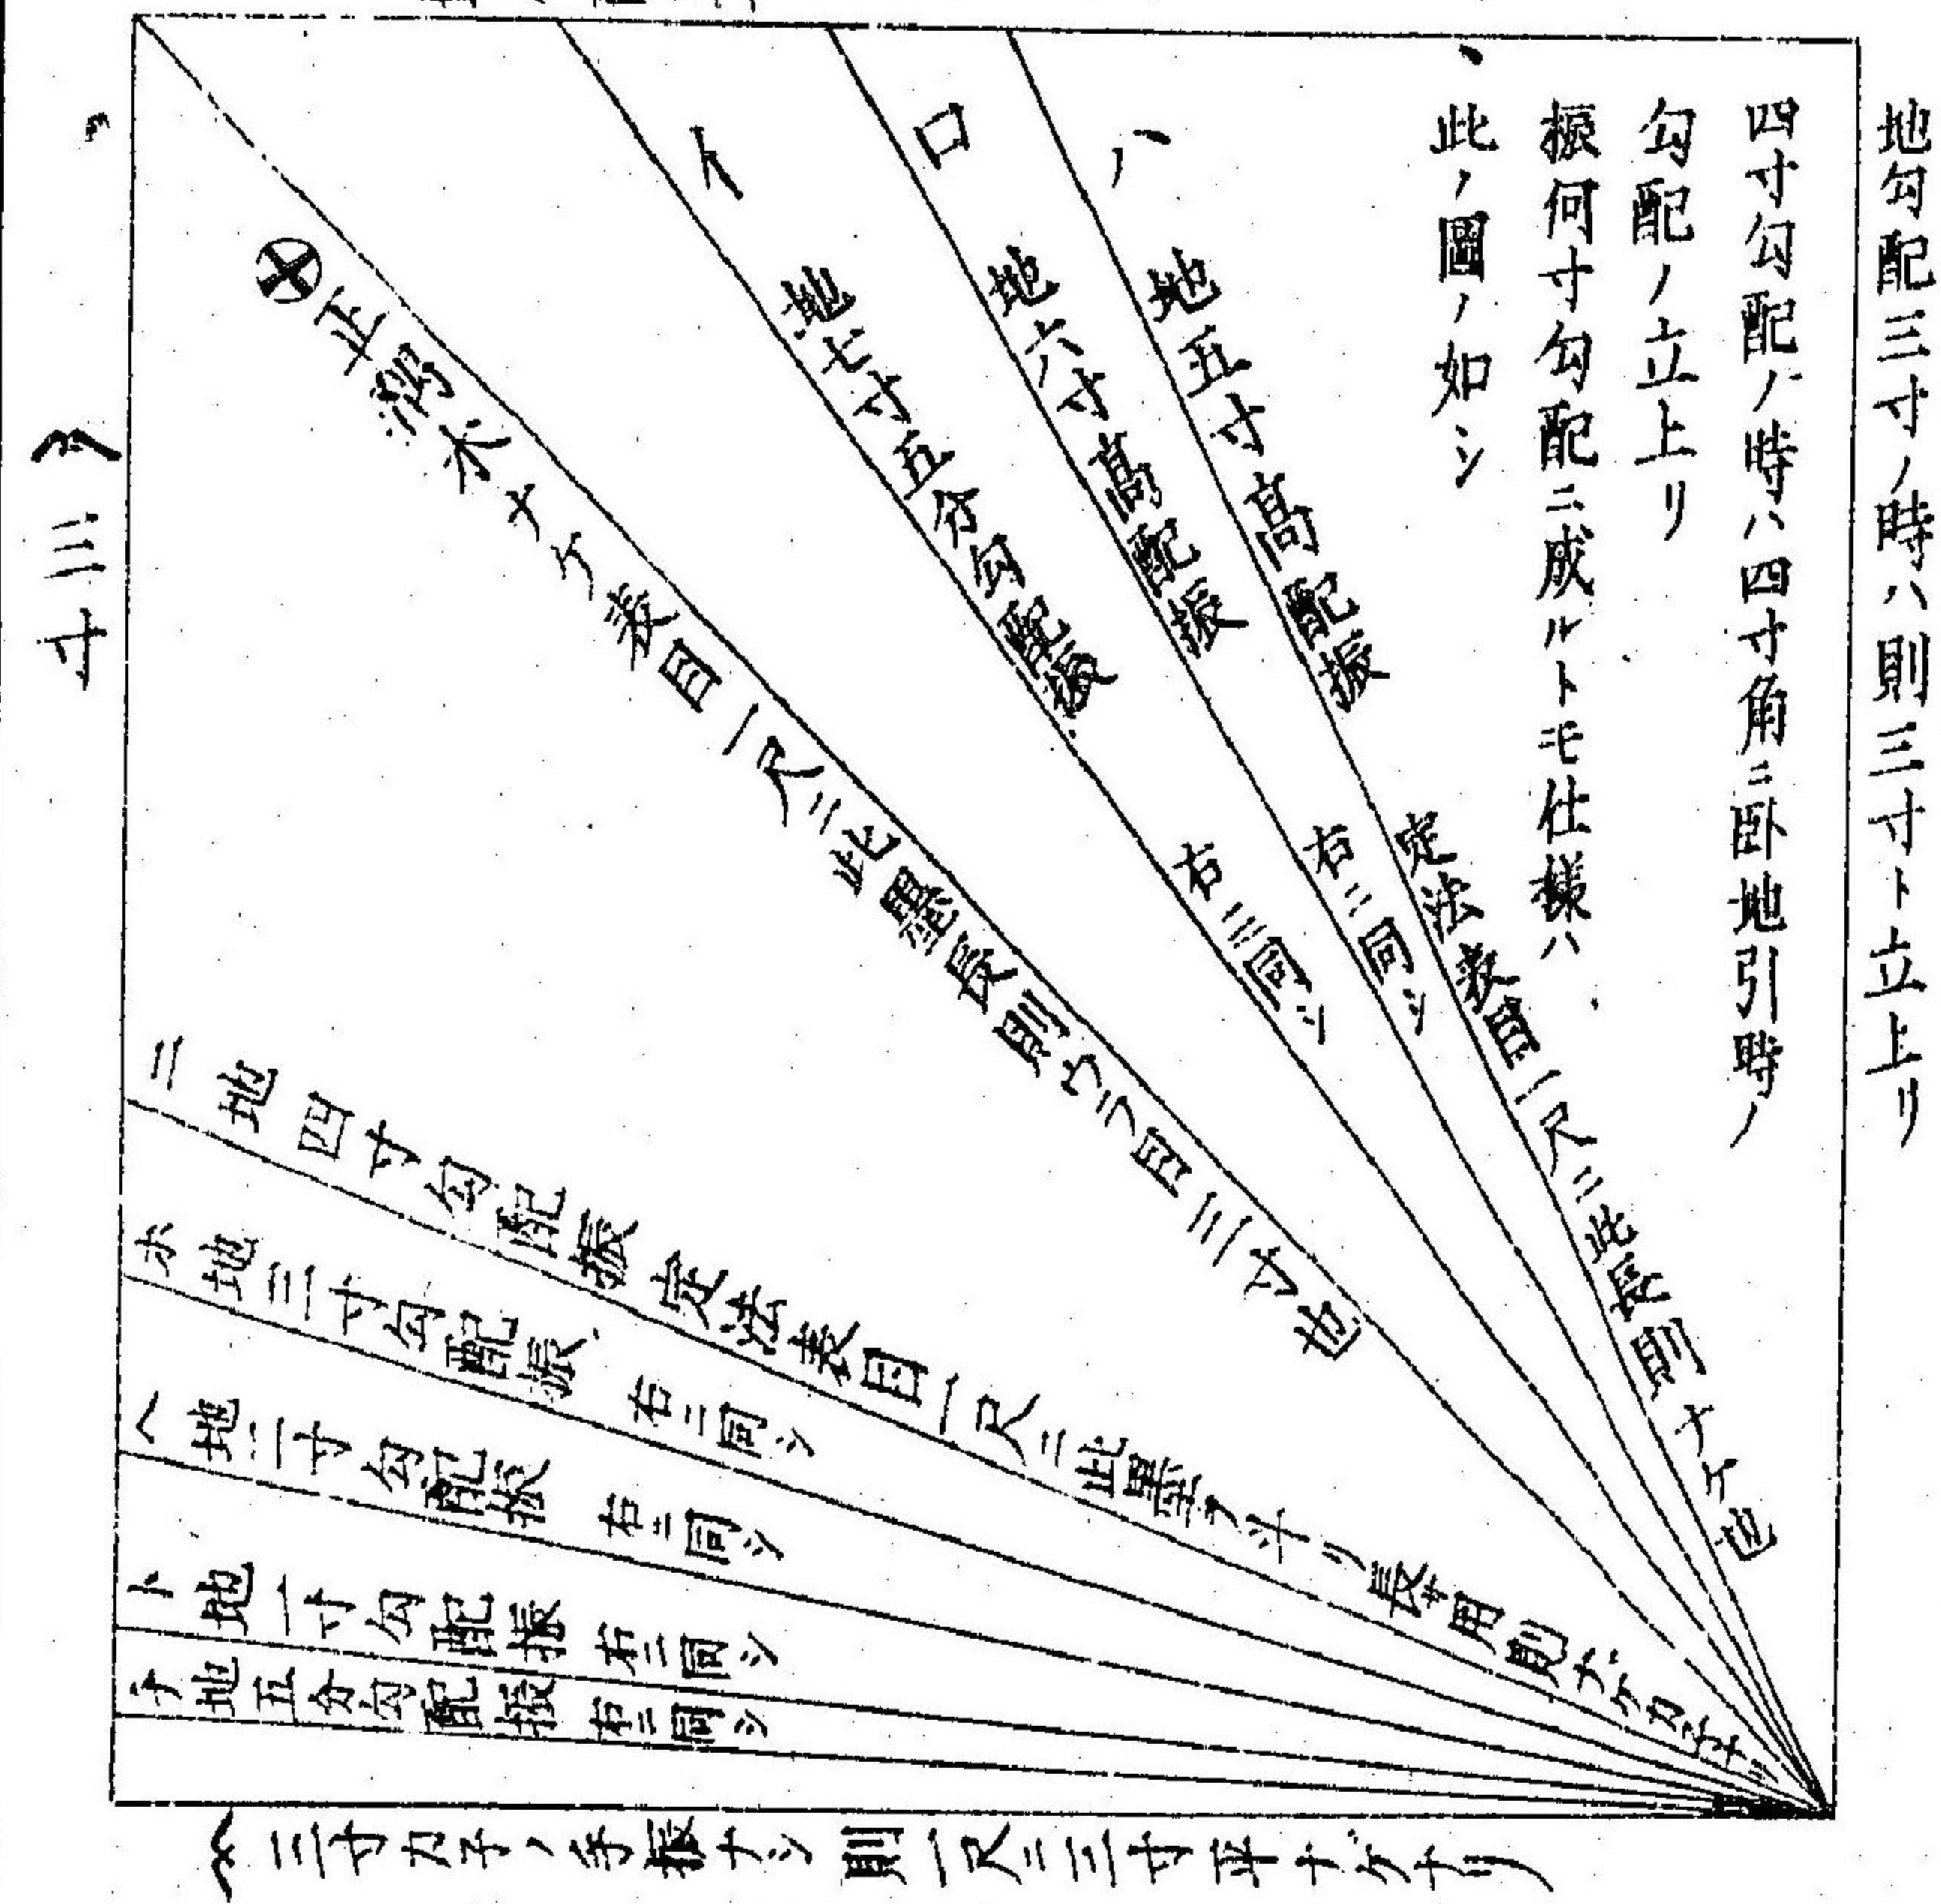 地勾配三寸ノ時ハ則三寸ト立上リ
四寸勾配ノ時ハ四寸角ニ卧地引時ノ
勾配ノ立上リ
振何寸勾配ニ成ルトモ仕様ハ
此ノ圖ノ如シ
ハ 地五寸高配振 定法表目一尺ニ此長則ナゲ也
ロ 地六寸高配振 右ニ同シ
イ 地七寸五分勾配振 右ニ同シ
正 水ナゲ表目一尺ニ此墨長則ウラ目三寸也
ニ 地四寸勾配振 定法表目一尺ニ此墨
ホ 地三寸勾配振 右ニ同シ
ヘ 地二寸勾配振 右ニ同シ
ト 地一寸勾配振 右ニ同シ
チ 地五分勾配振 右ニ同シ
三寸
三寸カネノ手振ナシ 則一尺ニ三寸平ナゲナリ